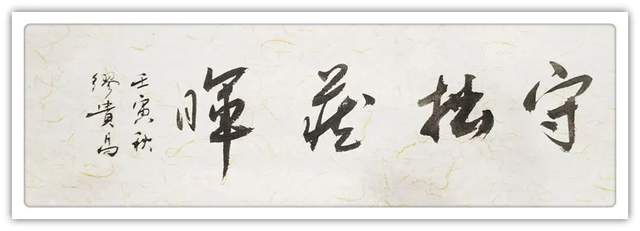 守拙藏暉
壬寅秋
繆貴